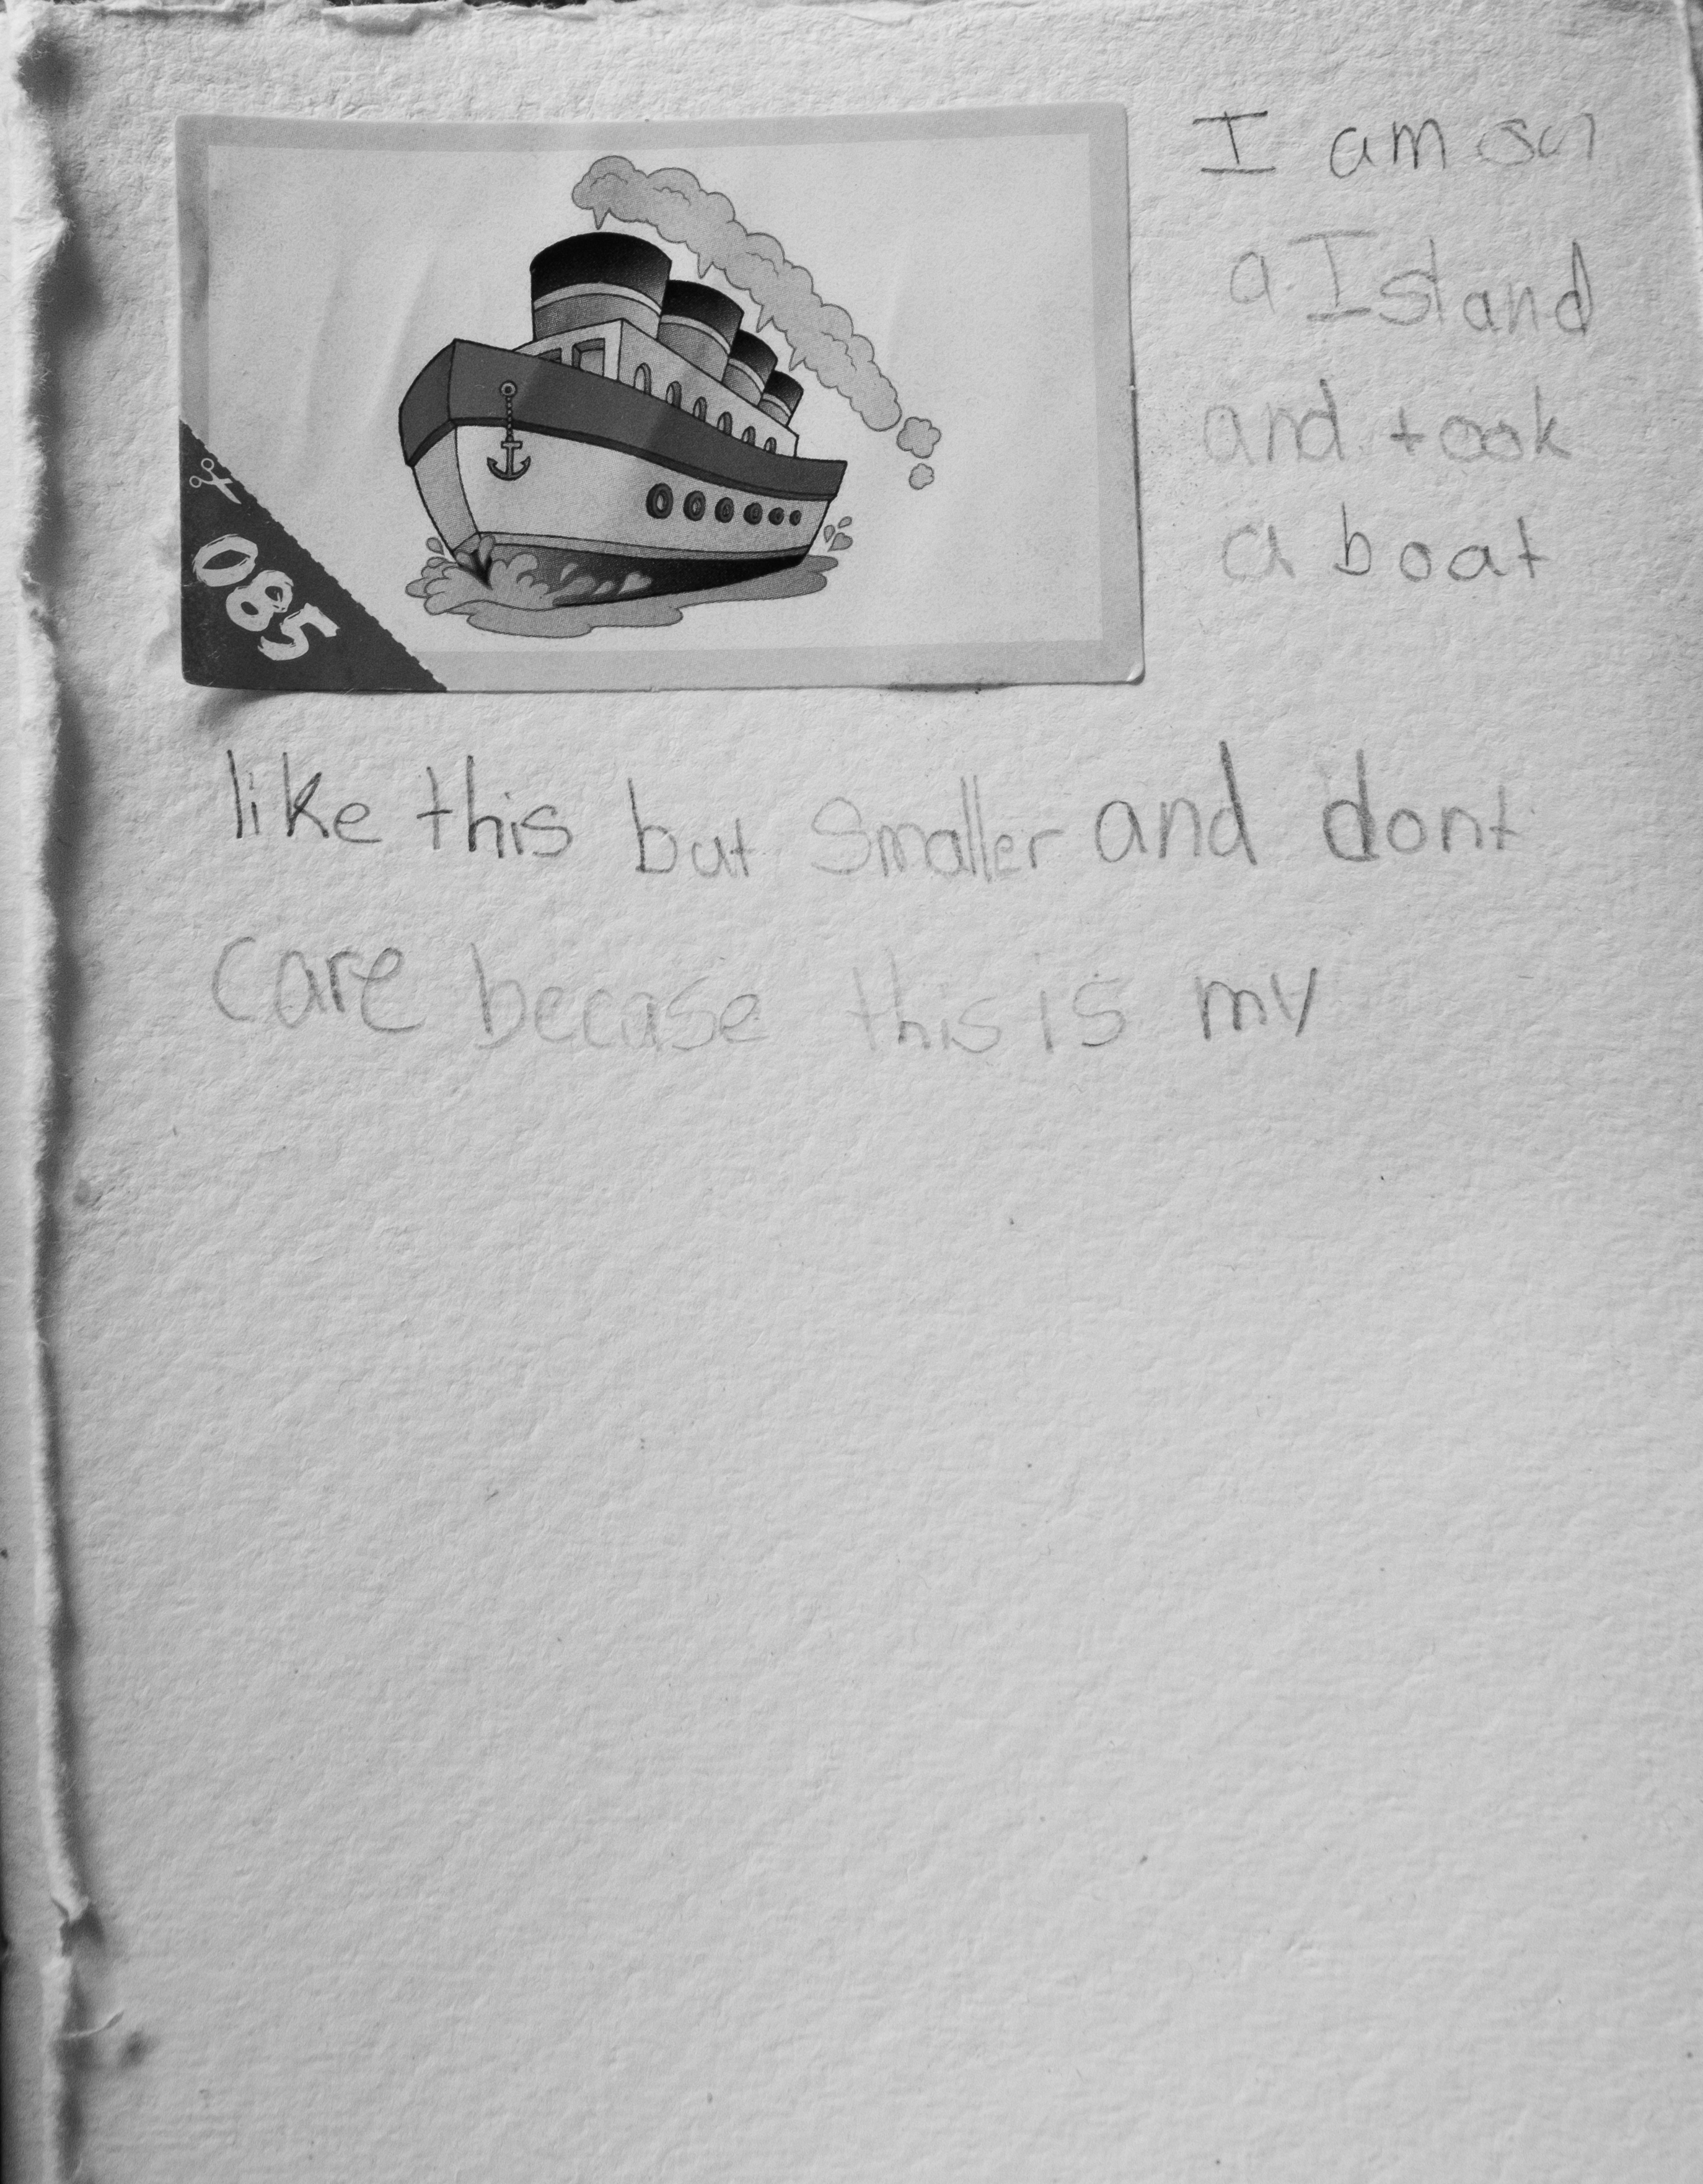 I am on
a Island
and took
a boat
085
like this but Smaller and dont
care becase this is my